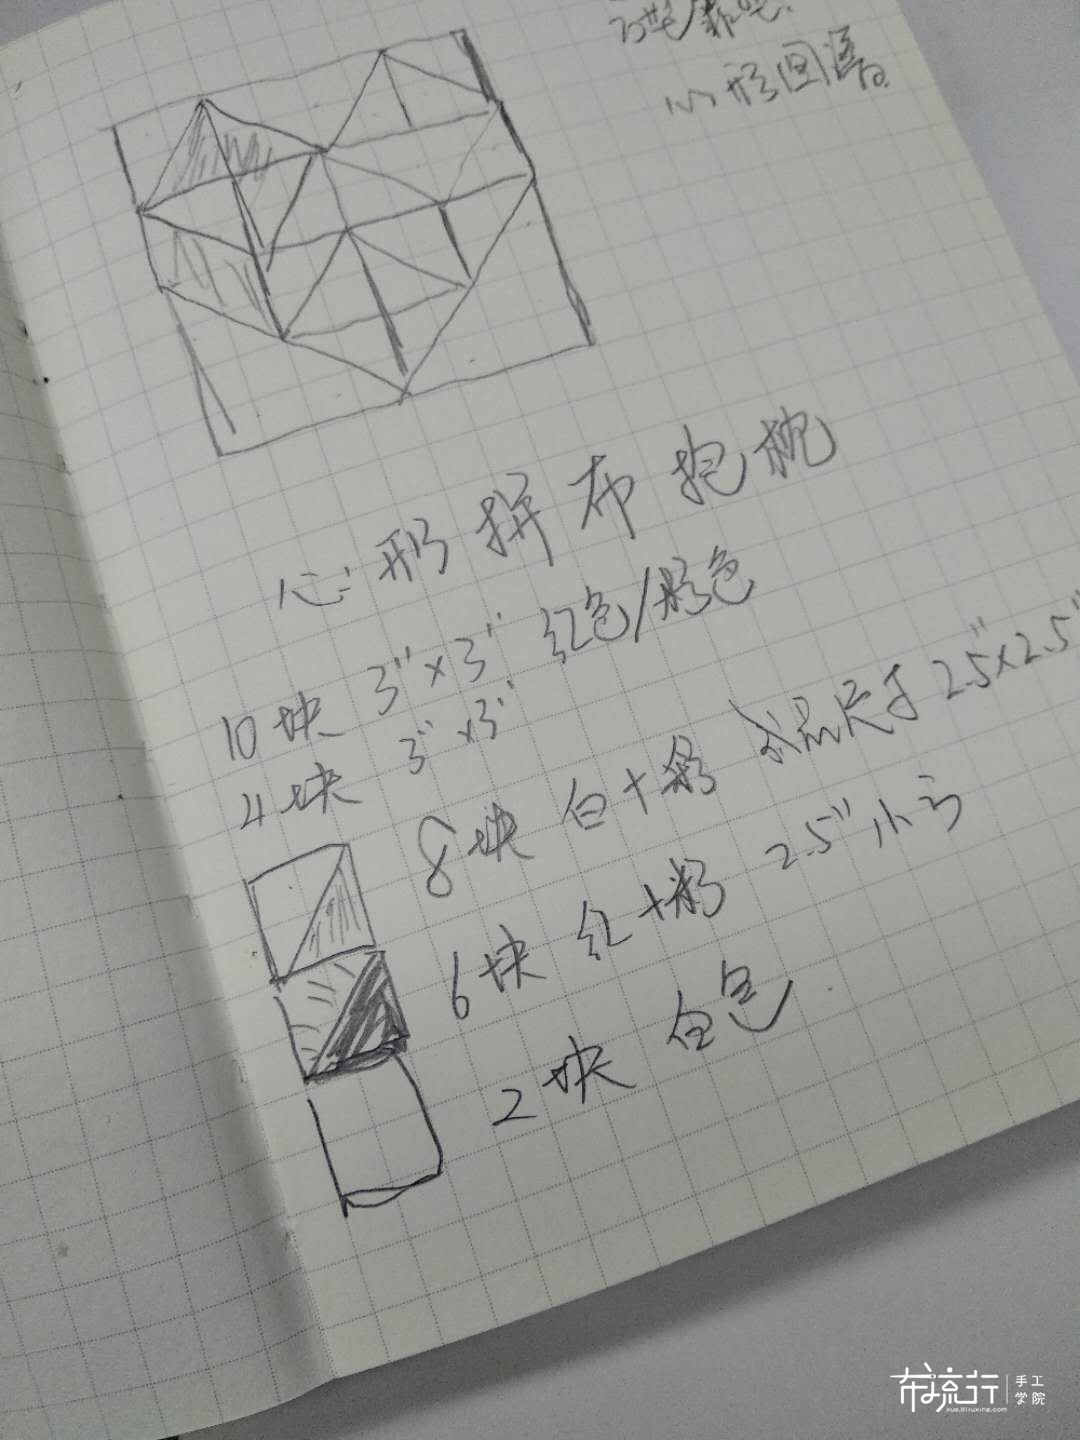 心形图谱
心形拼布抱枕
10块 3"×3" 红色/粉色
4块 3"×3"
8块 白+粉 成品尺寸 2.5"×2.5"
6块 红+粉 2.5"小方
2块 白色
布流行 手工学院
xue.bliuxing.com